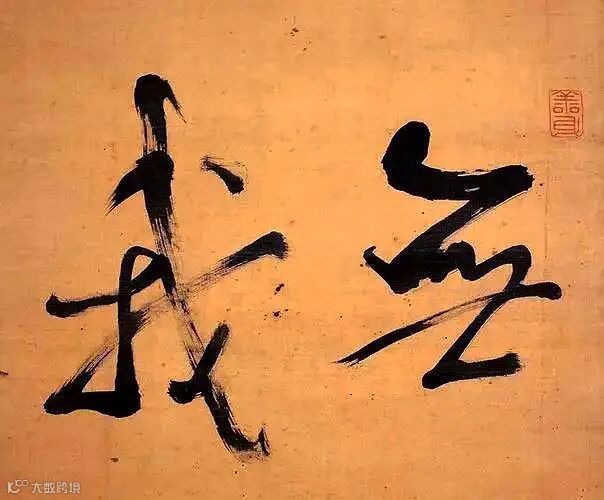 無我
大数跨境